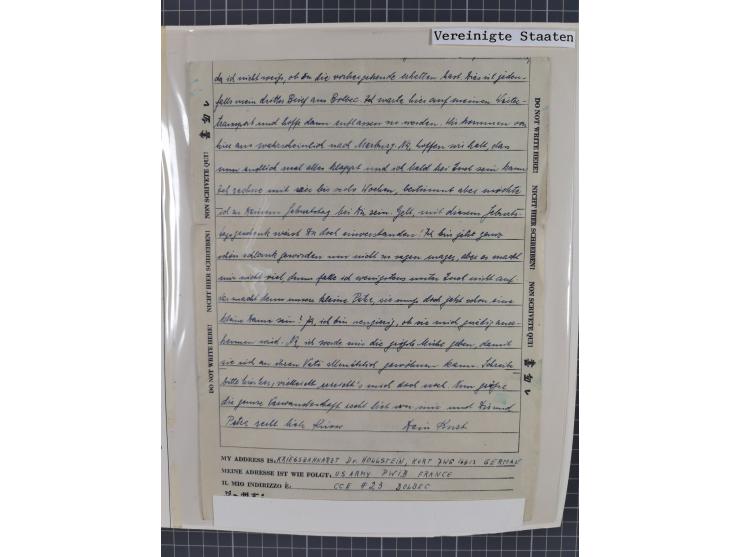 Vereinigte Staaten
da ich nicht weiß, ob Du die vorhergehende erhalten hast. Dies ist jeden-
falls mein dritter Brief aus Bolbec. Ich warte hier auf meinen Weiter-
transport und hoffe dann entlassen zu werden. Wir kommen von
hier aus wahrscheinlich nach Marburg. Na, hoffen wir halt, das
nun endlich mal alles klappt und ich bald bei Euch sein kann
Ich rechne mit vier bis sechs Wochen, bestimmt aber möchte
ich zu Deinem Geburtstag bei Dir sein. Gelt, mit diesem Geburts-
tagsgeschenk wärst Du doch einverstanden! Ich bin jetzt ganz
schön schlank geworden um nicht zu sagen mager, aber es macht
mir nicht viel, denn falle ich wenigstens unter Euch nicht auf
macht denn unser kleine Peter, sie muß doch jetzt schon eine
kleine Dame sein! Ja, ich bin neugierig, ob sie mich gnädig aner-
kennen wird. Na, ich werde mir die größte Mühe geben, damit
sie sich an ihren Vati allmählich gewöhnen kann. Schreib
bitte hierher, vielleicht erreicht's mich doch noch. Nun grüße
die ganze Verwandtschaft recht lieb von mir und Dir und
Peter recht liebe Küsse Dein Kurt
NON SCRIVETE QUI!
NICHT HIER SCHREIBEN!
DO NOT WRITE HERE!
DO NOT WRITE HERE!
NICHT HIER SCHREIBEN!
NON SCRIVETE QUI!
MY ADDRESS IS: KRIEGSZAHNARZT Dr. HOLLSTEIN, KURT GERMAN
MEINE ADRESSE IST WIE FOLGT: US ARMY PWIB FRANCE
IL MIO INDIRIZZO È: CCE #23 BOLBEC